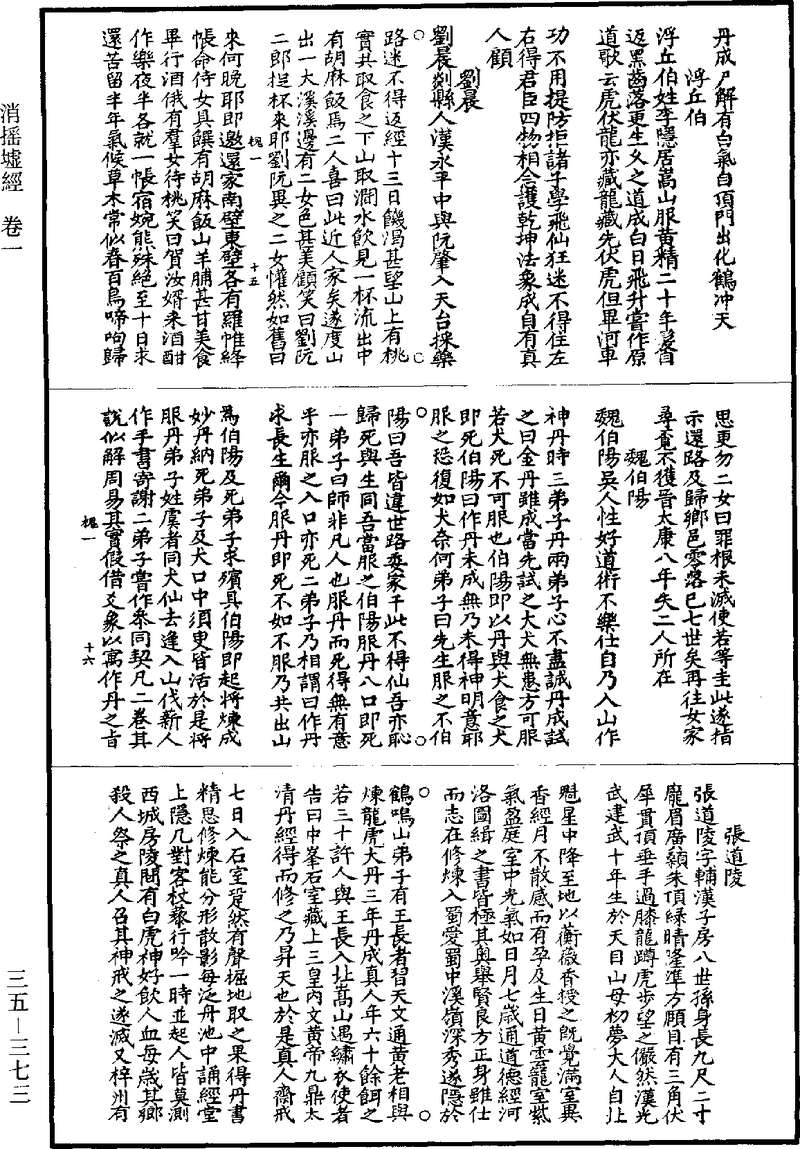 消搖墟經　卷一
三五—三七三
丹成尸解有白氣自頂門出化鶴冲天
浮丘伯
浮丘伯姓李隱居嵩山服黄精二十年髮白
返黑齒落更生久之道成白日飛升嘗作原
道歌云虎伏龍亦藏龍藏先伏虎但畢河車
功不用提防拒諸子學飛仙狂迷不得住左
右得君臣四物相念護乾坤法象成自有真
人顧
劉晨
劉晨剡縣人漢永平中與阮肇入天台採藥
路迷不得返經十三日饑渴甚望山上有桃
實共取食之下山取澗水飲見一杯流出中
有胡麻飯焉二人喜曰此近人家矣遂度山
出一大溪溪邊有二女色甚美顧笑曰劉阮
二郎捉杯來耶劉阮異之二女懽然如舊曰
槐一
十五
來何晚耶即邀還家南壁東壁各有羅帷絳
帳命侍女具饌有胡麻飯山羊脯甚甘美食
畢行酒俄有羣女待桃笑曰賀汝婿來酒酣
作樂夜半各就一帳宿婉態殊絕至十日求
還苦留半年氣候草木常似春百鳥啼呴歸
思更勿二女曰罪根未滅使若等圭此遂指
示還路及歸鄉邑零落已七世矣再往女家
尋覓不獲晉太康八年失二人所在
魏伯陽
魏伯陽吳人性好道術不樂仕自乃入山作
神丹時三弟子丹兩弟子心不盡誠丹成試
之曰金丹雖成當先試之犬犬無患方可服
若犬死不可服也伯陽即以丹與犬食之犬
即死伯陽曰作丹未成無乃未得神明意耶
服之恐復如犬奈何弟子曰先生服之不伯
陽曰吾皆違世路委家于此不得仙吾亦恥
歸死與生同吾當服之伯陽服丹入口即死
一弟子曰師非凡人也服丹而死得無有意
乎亦服之入口亦死二弟子乃相謂曰作丹
求長生爾今服丹即死不如不服乃共出山
爲伯陽及死弟子求殯具伯陽即起將煉成
妙丹納死弟子及犬口中須更皆活於是將
服丹弟子姓虞者同犬仙去逢入山伐薪人
作手書寄謝二弟子嘗作叅同契凡二卷其
說似解周易其實假借爻象以寓作丹之旨
槐一
十六
張道陵
張道陵字輔漢子房八世孫身長九尺二寸
龐眉廣顙朱頂綠睛隆準方頤目有三角伏
犀貫頂垂手過膝龍蹲虎步望之儼然漢光
武建武十年生於天目山母初夢大人自北
魁星中降至地以蘅薇香授之旣覺滿室異
香經月不散感而有孕及生日黃雲籠室紫
氣盈庭室中光氣如日月七歲通道德經河
洛圖緯之書皆極其奧舉賢良方正身雖仕
而志在修煉入蜀愛蜀中溪嶺深秀遂隱於
鶴鳴山弟子有王長者習天文通黄老相與
煉龍虎大丹三年丹成真人年六十餘餌之
若三十許人與王長入北嵩山遇繡衣使者
告曰中峯石室藏上三皇内文黄帝九鼎太
清丹經得而修之乃昇天也於是真人齋戒
七日入石室跫然有聲掘地取之果得丹書
精思修煉能分形散影每泛丹池中誦經堂
上隱几對客杖藜行吟一時並起人皆莫測
西城房陵間有白虎神好飲人血每歲其鄉
殺人祭之真人召其神戒之遂滅又梓州有